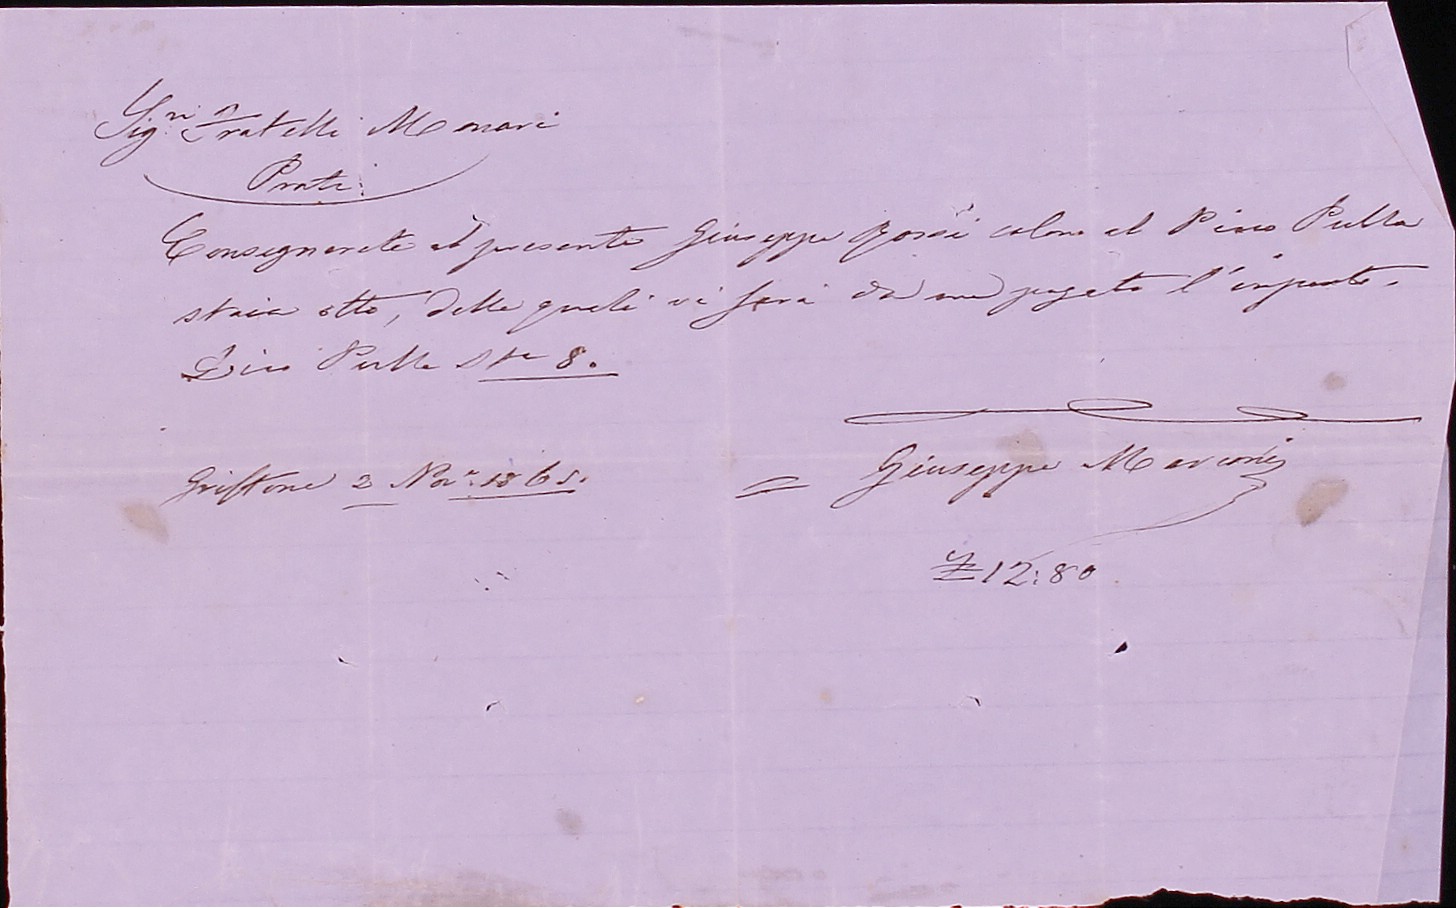 Sig.ri Fratelli Monari
Prati
Consegnerete al presente Giuseppe Rossi colono al Pino Pulla
staia otto, delle quali vi sarà da me pagato l'importo.
Dico Pulla Sta 8.
Griffone 2 Nov. 1865.
= Giuseppe Marconi
£ 12:80